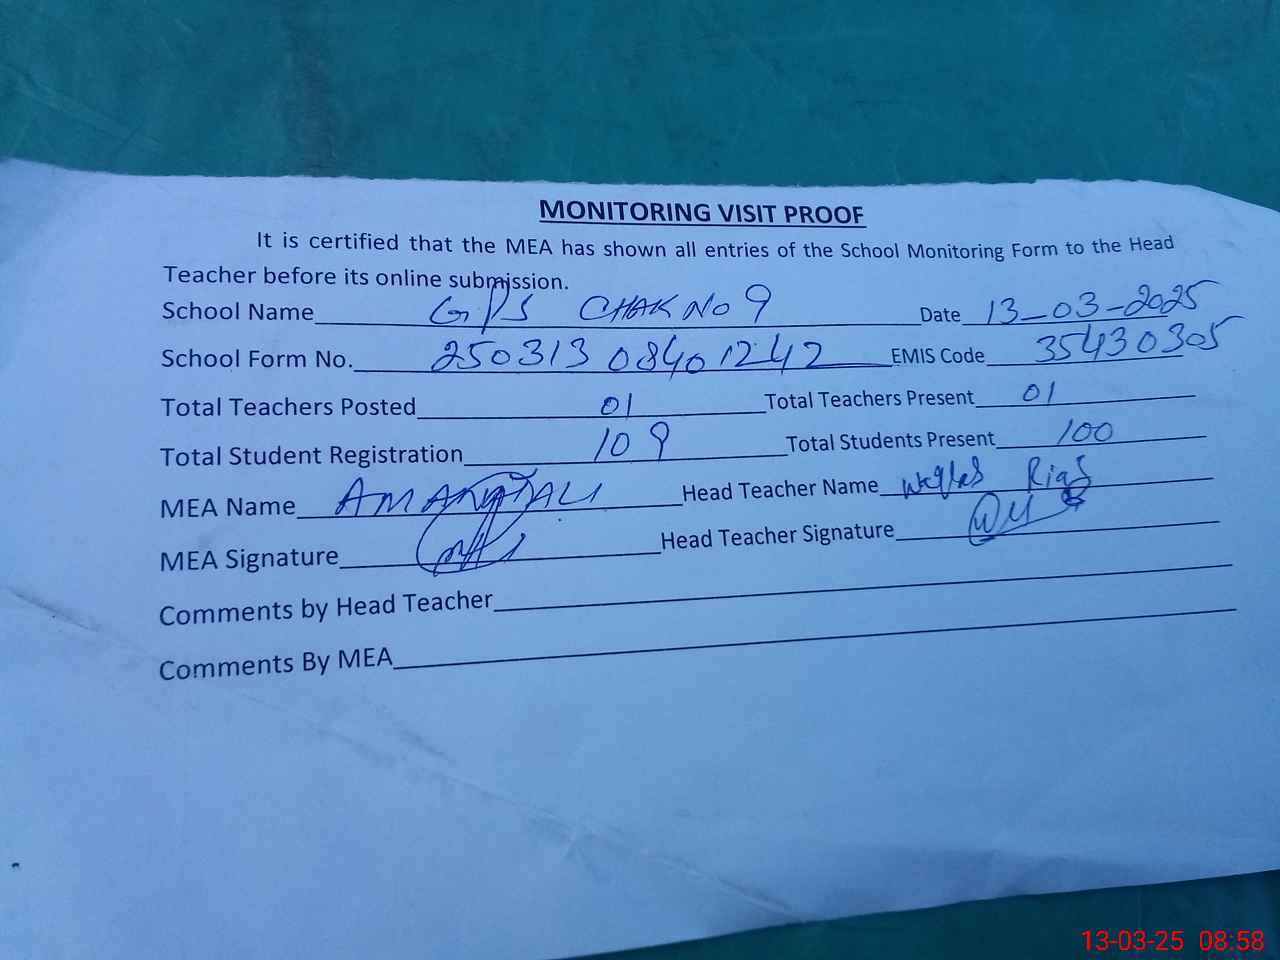 MONITORING VISIT PROOF
It is certified that the MEA has shown all entries of the School Monitoring Form to the Head
Teacher before its online submission.
School Name GPS CHAK No 9 Date 13-03-2025
School Form No. 250313 08401242 EMIS Code 35430305
Total Teachers Posted 01 Total Teachers Present 01
Total Student Registration 109 Total Students Present 100
MEA Name AMANAT ALI Head Teacher Name
MEA Signature Head Teacher Signature
Comments by Head Teacher
Comments By MEA
13-03-25 08:58